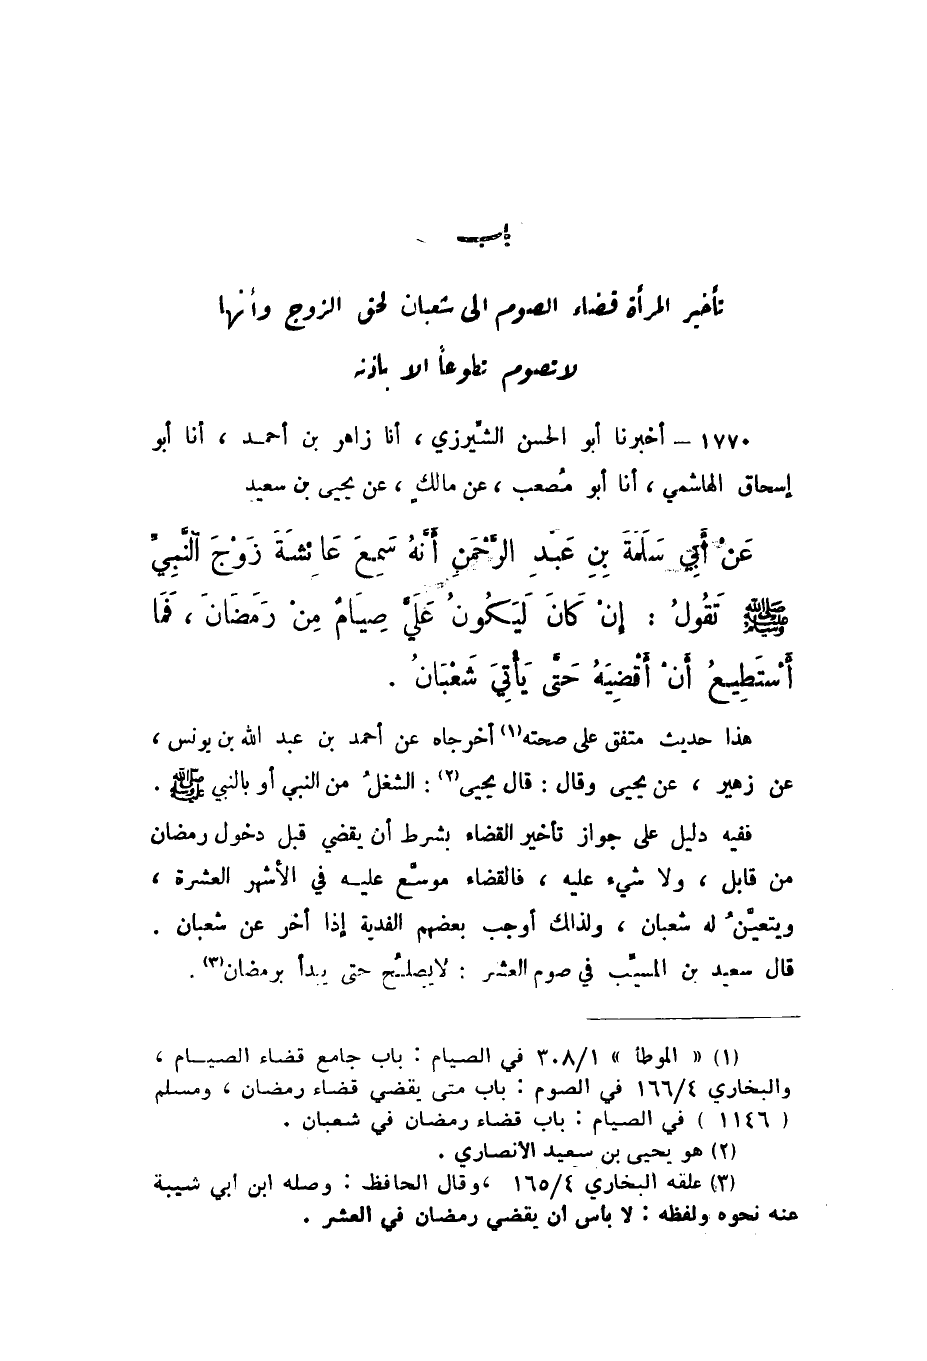 باب
تأخير المرأة قضاء الصوم الى شعبان لحق الزوج وأنها
لا تصوم تطوعاً الا باذنه
١٧٧٠ – أخبرنا أبو الحسن الشِّيرزي ، أنا زاهر بن أحمـد ، أنا أبو
إسحاق الهاشمي ، أنا أبو مُصعب ، عن مالكٍ ، عن يحيى بن سعيد
عَنْ أَبِي سَلَمَةَ بنِ عَبْدِ الرَّحْمَنِ أَنَّهُ سَمِعَ عَائِشَةَ زَوْجَ النَّبِيِّ
ﷺ تَقُولُ : إِنْ كَانَ لَيَكُونُ عَلَيَّ صِيَامٌ مِنْ رَمَضَانَ ، فَمَا
أَسْتَطِيعُ أَنْ أَقْضِيَهُ حَتَّى يَأْتِيَ شَعْبَانُ .
هذا حديث متفق على صحته(١) أخرجاه عن أحمد بن عبد الله بن يونس ،
عن زهير ، عن يحيى وقال : قال يحيى(٢) : الشغلُ من النبي أو بالنبي ﷺ .
ففيه دليل على جواز تأخير القضاء بشرط أن يقضي قبل دخول رمضان
من قابل ، ولا شيء عليه ، فالقضاء موسَّع عليـه في الأشهر العشرة ،
ويتعيَّنُ له شعبان ، ولذلك أوجب بعضهم الفدية إذا أخر عن شعبان .
قال سعيد بن المسيَّب في صوم العشر : لا يصلُح حتى يبدأ برمضان(٣) .
(١) « الموطأ » ٣٠٨/١ في الصيام : باب جامع قضاء الصيـام ،
والبخاري ١٦٦/٤ في الصوم : باب متى يقضي قضاء رمضان ، ومسلم
( ١١٤٦ ) في الصيام : باب قضاء رمضان في شعبان .
(٢) هو يحيى بن سعيد الانصاري .
(٣) علقه البخاري ١٦٥/٤ ،وقال الحافظ : وصله ابن أبي شيبة
عنه نحوه ولفظه : لا بأس أن يقضي رمضان في العشر .